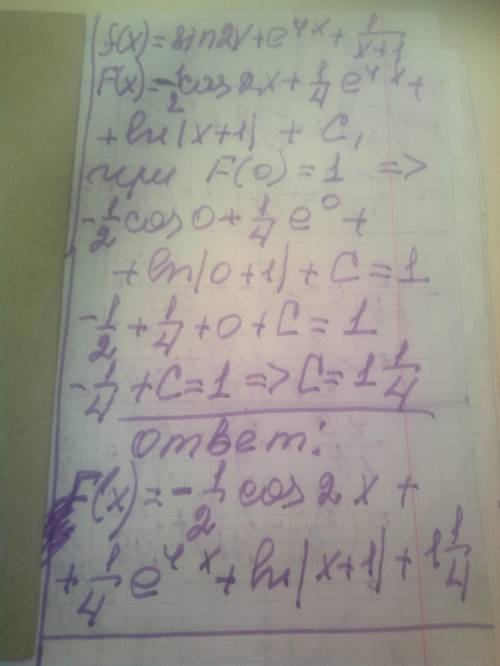 f(x)=sin2x+e^4x+1/(x+1)
F(x)=-1/2cos2x+1/4 e^4x+
+ln|x+1| + C,
при F(0)=1 =>
-1/2 cos0+1/4 e^0+
+ln|0+1|+C=1
-1/2+1/4+0+C=1
-1/4+C=1=>C=1 1/4
ответ:
F(x)=-1/2 cos2x+
+1/4 e^4x+ln|x+1|+1 1/4